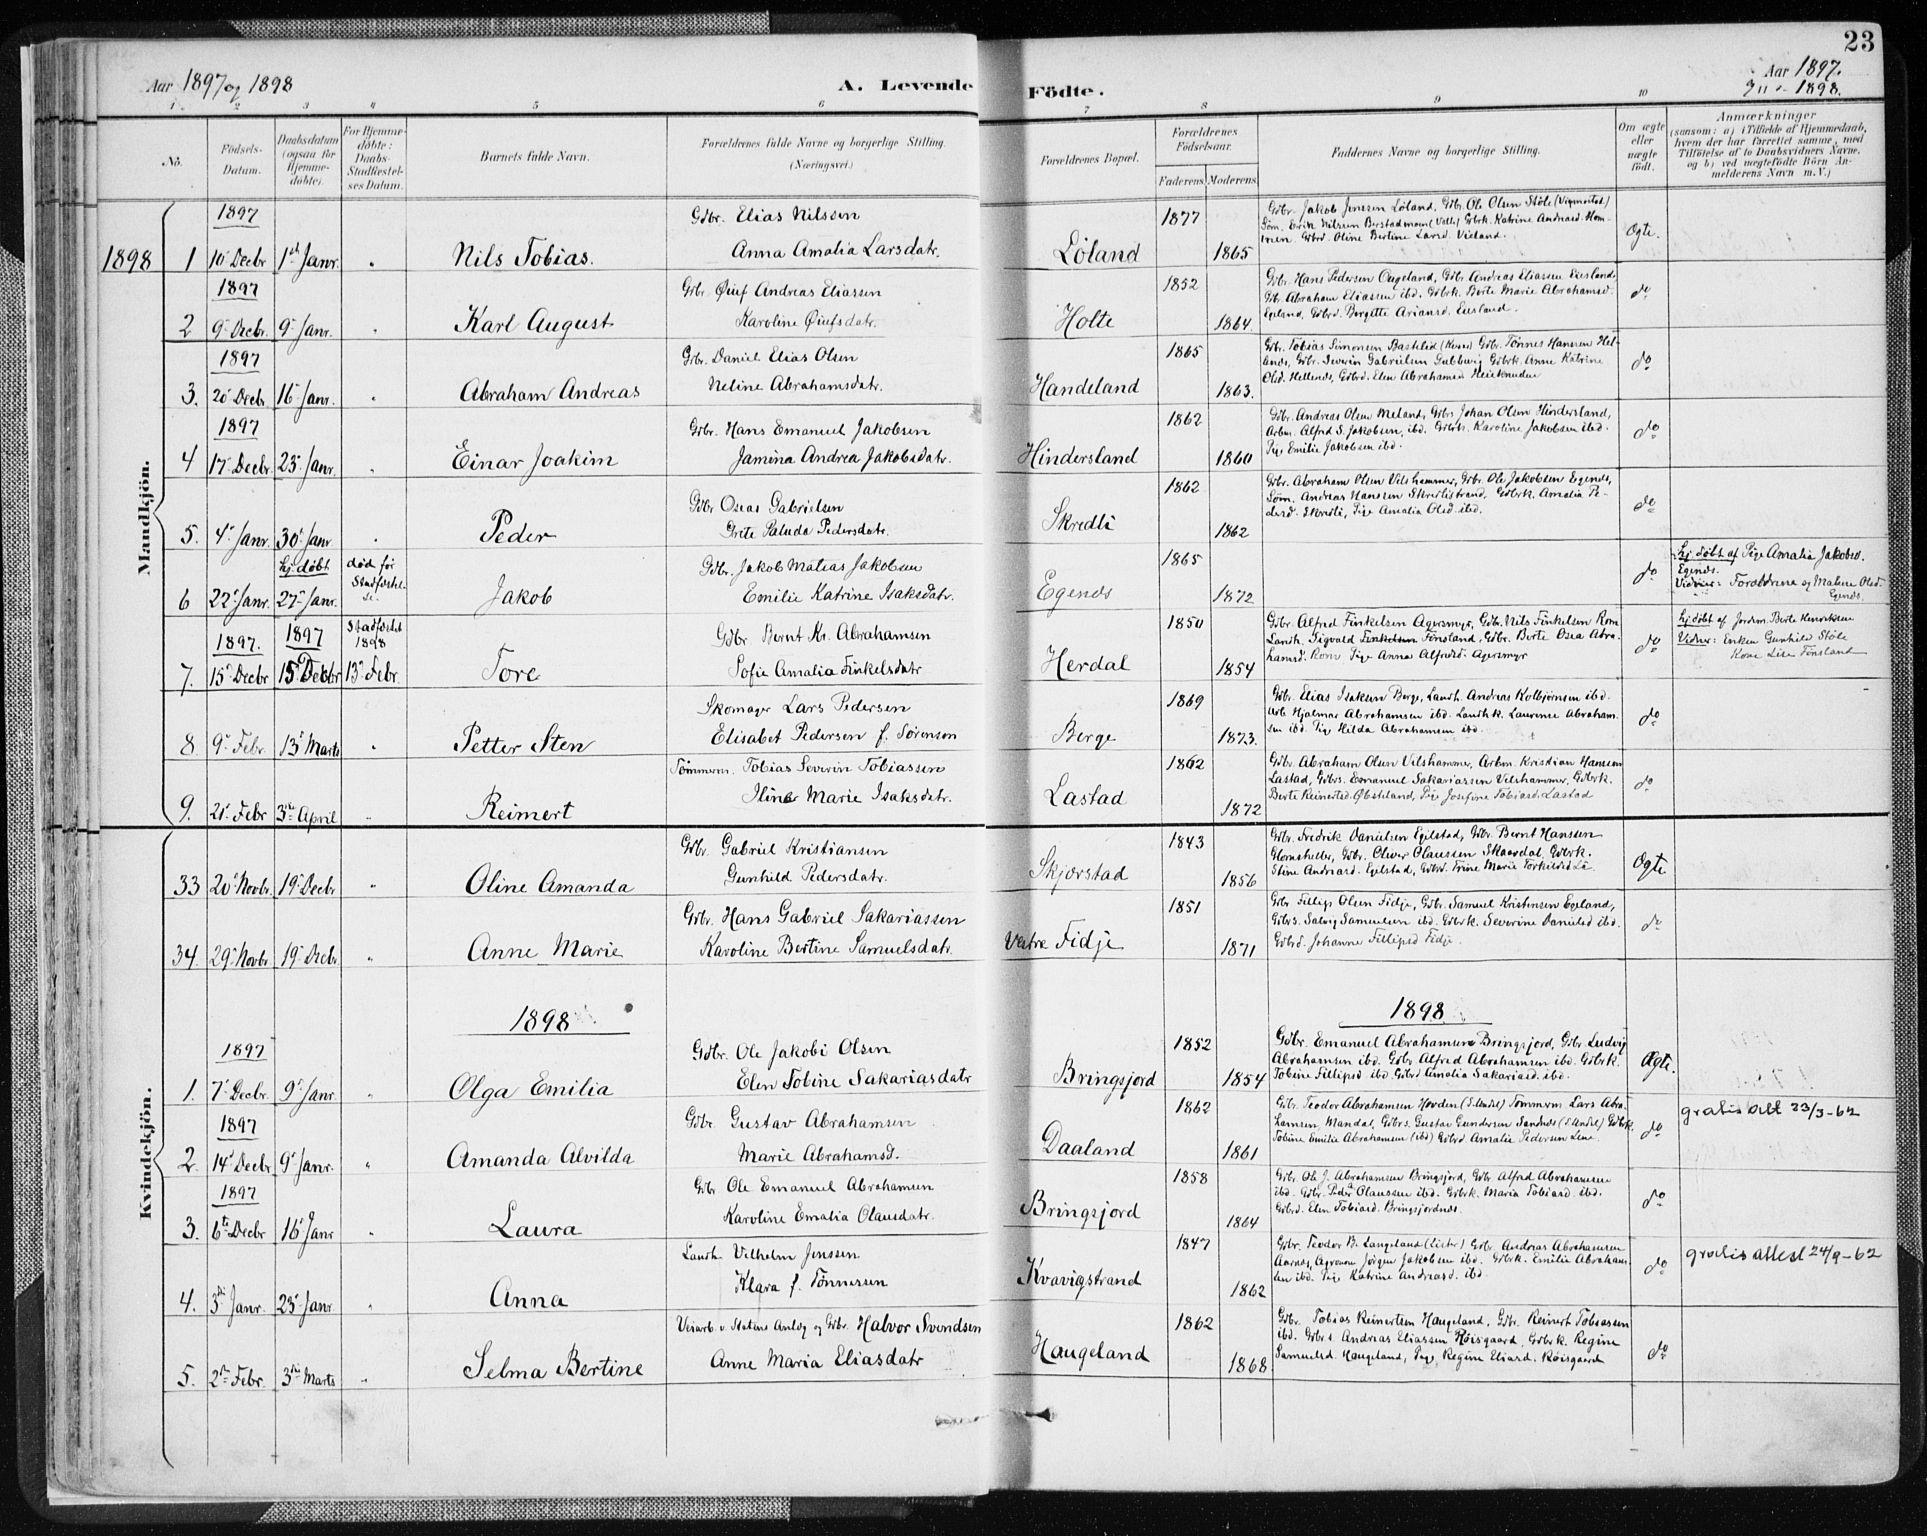 23
Aar 1897 og 1898
A. Levende Födte.
Aar 1897.
1898.
1 2 3 4 5 6 7 8 9 10
No.
Födsels-Datum.
Daabsdatum (ogsaa for Hjemmedöbte).
For Hjemmedöbte: Daabs-Stadfæstelses Datum.
Barnets fulde Navn.
Forældrenes fulde Navne og borgerlige Stilling. (Næringsvei)
Forældrenes Bopæl.
Forældrenes Födselsaar.
Faderens Moderens
Faddernes Navne og borgerlige Stilling.
Om ægte eller uægte födt.
Anmærkninger
(saasom: a) i Tilfælde af Hjemmedaab, hvem der har forrettet samme, med Tilföielse af to Daabsvidners Navne, og b) ved uægtefödte Börn Anmelderens Navn m.V.)
Mandkjön.
1898
1897
1 10de Decbr 1ste Janr. " Nils Tobias.
Gdbr. Elias Nilssen
Anna Amalia Larsdatr.
Löland 1877 1865
Gdbr. Jakob Jenssen Löland, Gdbr. Ole Olsen Stöle (Vigmostad)
Söm. Erik Nilssen Berstadmoen (Valle) Gdbrk. Katrine Andreasd. Hommen Gdbrd. Oline Bertine Larsd. Vieland.
Ægte.
1897
2 9de Decbr. 9de Janr. " Karl August
Gdbr. Øiuf Andreas Eliassen
Karoline Øiufsdatr.
Holte 1852 1864.
Gdbr. Hans Pedersen Ougeland, Gdbr. Andreas Eliassen Eiesland,
Gdbr. Abraham Eliassen ibd. Gdbrk. Berte Marie Abrahamsd.
Egeland, Gdbrd. Birgitte Ariansd. Eiesland.
do
1897
3. 20de Decbr. 16de Janr. " Abraham Andreas
Gdbr. Daniel Elias Olsen
Neline Abrahamsdatr.
Handeland 1865 1863.
Gdbr. Tobias Simonsen Bastelid (Konsm) Gdbr. Tönnes Hanssen Helands, Gdbr. Severin Gabrielsen Gubbvig Gdbrk. Anne Katrine
Olsd. Hellends, Gdbrd. Elen Abrahamsd. Heieknuden
do
1897
4 17de Decbr. 23de Janr. " Einar Joakim
Gdbr. Hans Emanuel Jakobsen
Jamina Andrea Jakobsdatr.
Hindersland 1862 1860
Gdbr. Andreas Olsen Meland, Gdbrs. Johan Olsen Hindersland,
Arbm. Alfred S. Jakobsen, ibd. Gdbrk. Karoline Jakobsen ibd.
Pige Emilie Jakobsen ibd.
do
5. 4de Janr. 30de Janr. " Peder
Gdbr. Oseas Gabrielsen
Grete Saluda Pedersdatr.
Skredli 1862 1862
Gdbr. Abraham Olsen Vilshammer, Gdbr. Ole Jakobsen Egends,
Söm. Andreas Hanssen Skredlistrand, Gdbrk. Amalia Pedersd. Skredli, Pige Amalia Olsd. ibd.
do
6 22de Janr. hj. döbt 27de Janr. död før Stadfæstelse Jakob
Gdbr. Jakob Matias Jakobsen
Emilie Katrine Isaksdatr.
Egends 1865 1872
do
hj. döbt af Pige Amalia Jakobsd. Egends.
Vidner: Forældrene og Malene Olsd. Egends.
1897. 1897 Stadfæstet 1898
7. 15de Decbr 15de Decbr 13de Febr. Tore
Gdbr. Bernt Kr. Abrahamsen
Sofie Amalia Finkelsdatr
Herdal 1850 1854
Gdbr. Alfred Finkelsen Agersmyr, Gdbr. Nils Finkelsen Rom
Landh. Sigvald Finkelsen Finsland, Gdbr. Berte Osea Abrahamsd. Rom Pige Anna Alfredsd. Agersmyr
do
hj. döbt af Jordm. Berte Henriksen
Vidner: Enken Gunhild Stöle
Kone Lise Finsland
8. 9de Febr. 13de Marts " Petter Sten
Skomager Lars Pedersen
Elisabet Pedersen f. Sørenson
Berge 1869 1873.
Gdbr. Elias Isaksen Berge, Landh. Andreas Kolbjörnsen ibd.
Arb. Hjalmar Abrahamsen ibd. Landhk. Laurense Abrahamsen ibd. Pige Hilda Abrahamsen ibd.
do
9. 21de Febr 3die April " Reimert
Tömmerm. Tobias Severin Tobiassen
Iline Marie Isaksdatr.
Lastad 1862 1872
Gdbr. Abraham Olsen Vilshammer, Arbm. Kristian Hansen
Lastad, Gdbrs. Emanuel Sakariassen Vilshammer, Gdbrk.
Berte Reinertsd. Øbsteland, Pige Josefine Tobiasd. Lastad
do
Kvindekjön.
33 20de Novbr. 19de Decbr " Oline Amanda
Gdbr. Gabriel Kristiansen
Gunhild Pedersdatr.
Skjærstad 1843 1856
Gdbr. Fredrik Danielsen Egelstad, Gdbr. Bernt Hanssen
Glomsheller, Gdbr. Oliver Olaussen Skaardal, Gdbrk.
Stine Andreasd. Egelstad, Gdbrd. Trine Marie Torkildsd. Lia
Ægte
34. 29de Novbr 19de Decbr. " Anne Marie
Gdbr. Hans Gabriel Sakariassen
Karoline Bertine Samuelsdatr.
Vestre Fidje 1851 1871
Gdbr. Fillip Olsen Fidje, Gdbr. Samuel Kristensen Egeland,
Gdbrs. Salvig Samuelsen ibd. Gdbrk. Severine Danielsd ibd.
Gdbrd. Johanne Fillipsd Fidje.
do
1898 1898
1897
1. 7de Decbr. 9de Janr. " Olga Emilia
Gdbr. Ole Jakobi Olsen
Elen Tobine Sakariasdatr
Bringsjord 1852 1854
Gdbr. Emanuel Abrahamsen Bringsjord, Gdbr. Ludvig
Abrahamsen ibd. Gdbr. Alfred Abrahamsen ibd. Gdbrk.
Tobine Fillipsd ibd. Gdbrd Amalia Sakariasd. ibd.
Ægte.
1897
2. 14de Decbr 9de Janr. " Amanda Alvilda
Gdbr. Gustav Abrahamsen
Marie Abrahamsd.
Daaland 1862 1861
Gdbr. Teodor Abrahamsen Hovden (S. Andel) Tömmerm. Lars Abrahamsen, Mandal, Gdbrs. Gustav Gundersen Sandnes (S. Andel) Gdbrk.
Tobine Emilie Abrahamsen (ibd) Gdbrd. Amalia Pedersen Lene.
do
gratis att 23/3-62
1897
3. 6te Decbr 16de Janr " Laura
Gdbr. Ole Emanuel Abrahamsen
Karoline Emalia Olausdatr.
Bringsjord 1858 1864
Gdbr. Ole J. Abrahamsen Bringsjord, Gdbr. Alfred Abrahamsen
ibd. Gdbr. Peder Olaussen ibd. Gdbrk. Maria Tobiasd. ibd.
Gdbrd. Elen Tobiasd. Bringsjordnes.
do
4. 3die Janr. 23de Janr. " Anna
Landh. Vilhelm Jenssen
Klara f. Tönnesen
Kvavigstrand 1847 1862
Gdbr. Teodor B. Langeland (Lister) Gdbr. Andreas Abrahamsen
Aarnes, Agronom Jörgen Jakobsen ibd. Gdbrk. Emilie Abrahamsen ibd. Pige Katrine Andreasd. ibd.
do
gratis attest 24/9-62
5. 2den Febr. 3die Marts " Selma Bertine
Veiarb. v. Statens Anlæg og Gdbr. Halvor Svendsen
Anne Maria Eliasdatr
Haugeland 1862 1868
Gdbr. Tobias Reinertsen Haugeland, Gdbr. Reinert Tobiassen
ibd. Gdbrs. Andreas Eliassen Röisgaard, Gdbrk. Regine
Samuelsd. Haugeland, Pige Regine Eliasd. Röisgaard
do